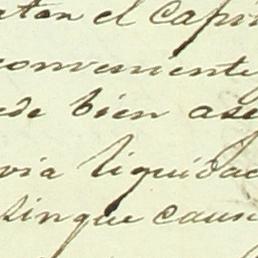 el Capi
conveniente
ede bien ase
via liquidac
sin que caus